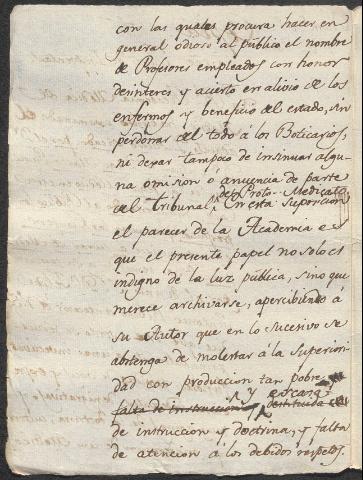 con las quales procura hacer en
general odioso al público el nombre
de Profesores empleados con honor
desinteres y acierto en alivio de los
enfermos y beneficio del estado, sin
perdonar del todo a los Boticarios,
ni dexar tampoco de insinuar algu-
na omision ó anuencia de parte
del Proto-Medicato
del Tribunal. En esta suposicion
el parecer de la Academia es
que el presente papel no solo es
indigno de la luz pública, sino que
merece archivarse, apercibiendo á
su Autor que en lo sucesivo se
abstenga de molestar á la Superiori-
dad con produccion tan pobre
y escasa
falta de instruccion y destituida
de instruccion y doctrina, y falta
de atencion a los debidos respetos.